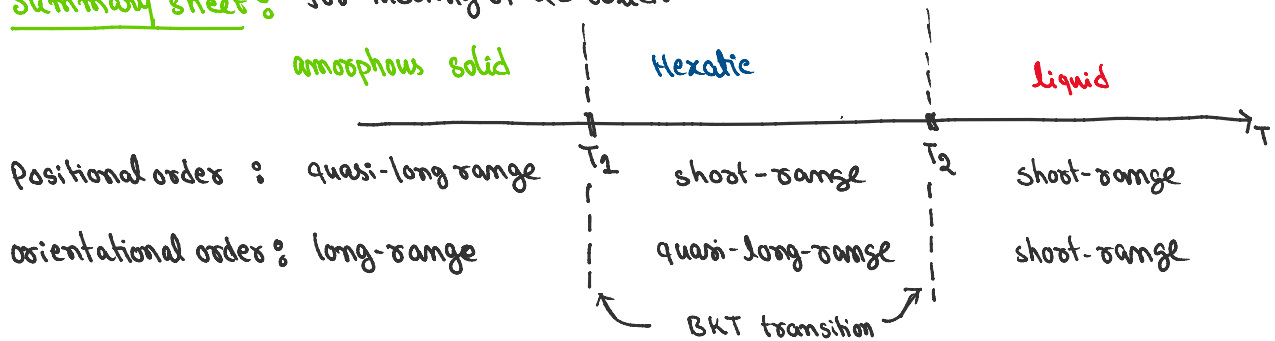 Summary sheet: for melting of 2D
amorphous solid Hexatic liquid
T
Positional order : quasi-long range T1 short-range T2 short-range
orientational order : long-range quasi-long-range short-range
BKT transition